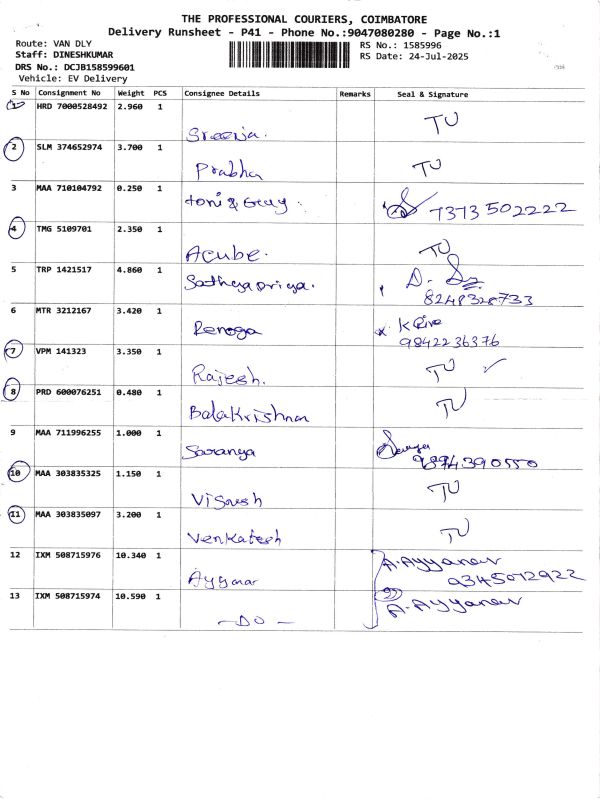 THE PROFESSIONAL COURIERS, COIMBATORE
Delivery Runsheet - P41 - Phone No.:9047080280 - Page No.:1
Route: VAN DLY
Staff: DINESHKUMAR
DRS No.: DCJB158599601
Vehicle: EV Delivery
RS No.: 1585996
RS Date: 24-Jul-2025
S No Consignment No Weight PCS Consignee Details Remarks Seal & Signature
1 HRD 7000528492 2.960 1 Sreeja. TU
2 SLM 374652974 3.700 1 Prabha TU
3 MAA 710104792 0.250 1 toni & Guy. 7373502222
4 TMG 5109701 2.350 1 Acube. TU
5 TRP 1421517 4.860 1 Sathyapriya. 8248328733
6 MTR 3212167 3.420 1 Renoga 9842236376
7 VPM 141323 3.350 1 Rajesh. TU
8 PRD 600076251 0.480 1 Balakrishnan TU
9 MAA 711996255 1.000 1 Saranya 9894390550
10 MAA 303835325 1.150 1 TU
11 MAA 303835097 3.200 1 Venkatesh TU
12 IXM 508715976 10.340 1 A.Ayyanar 9345012922
13 IXM 508715974 10.590 1 -DO- A.Ayyanar